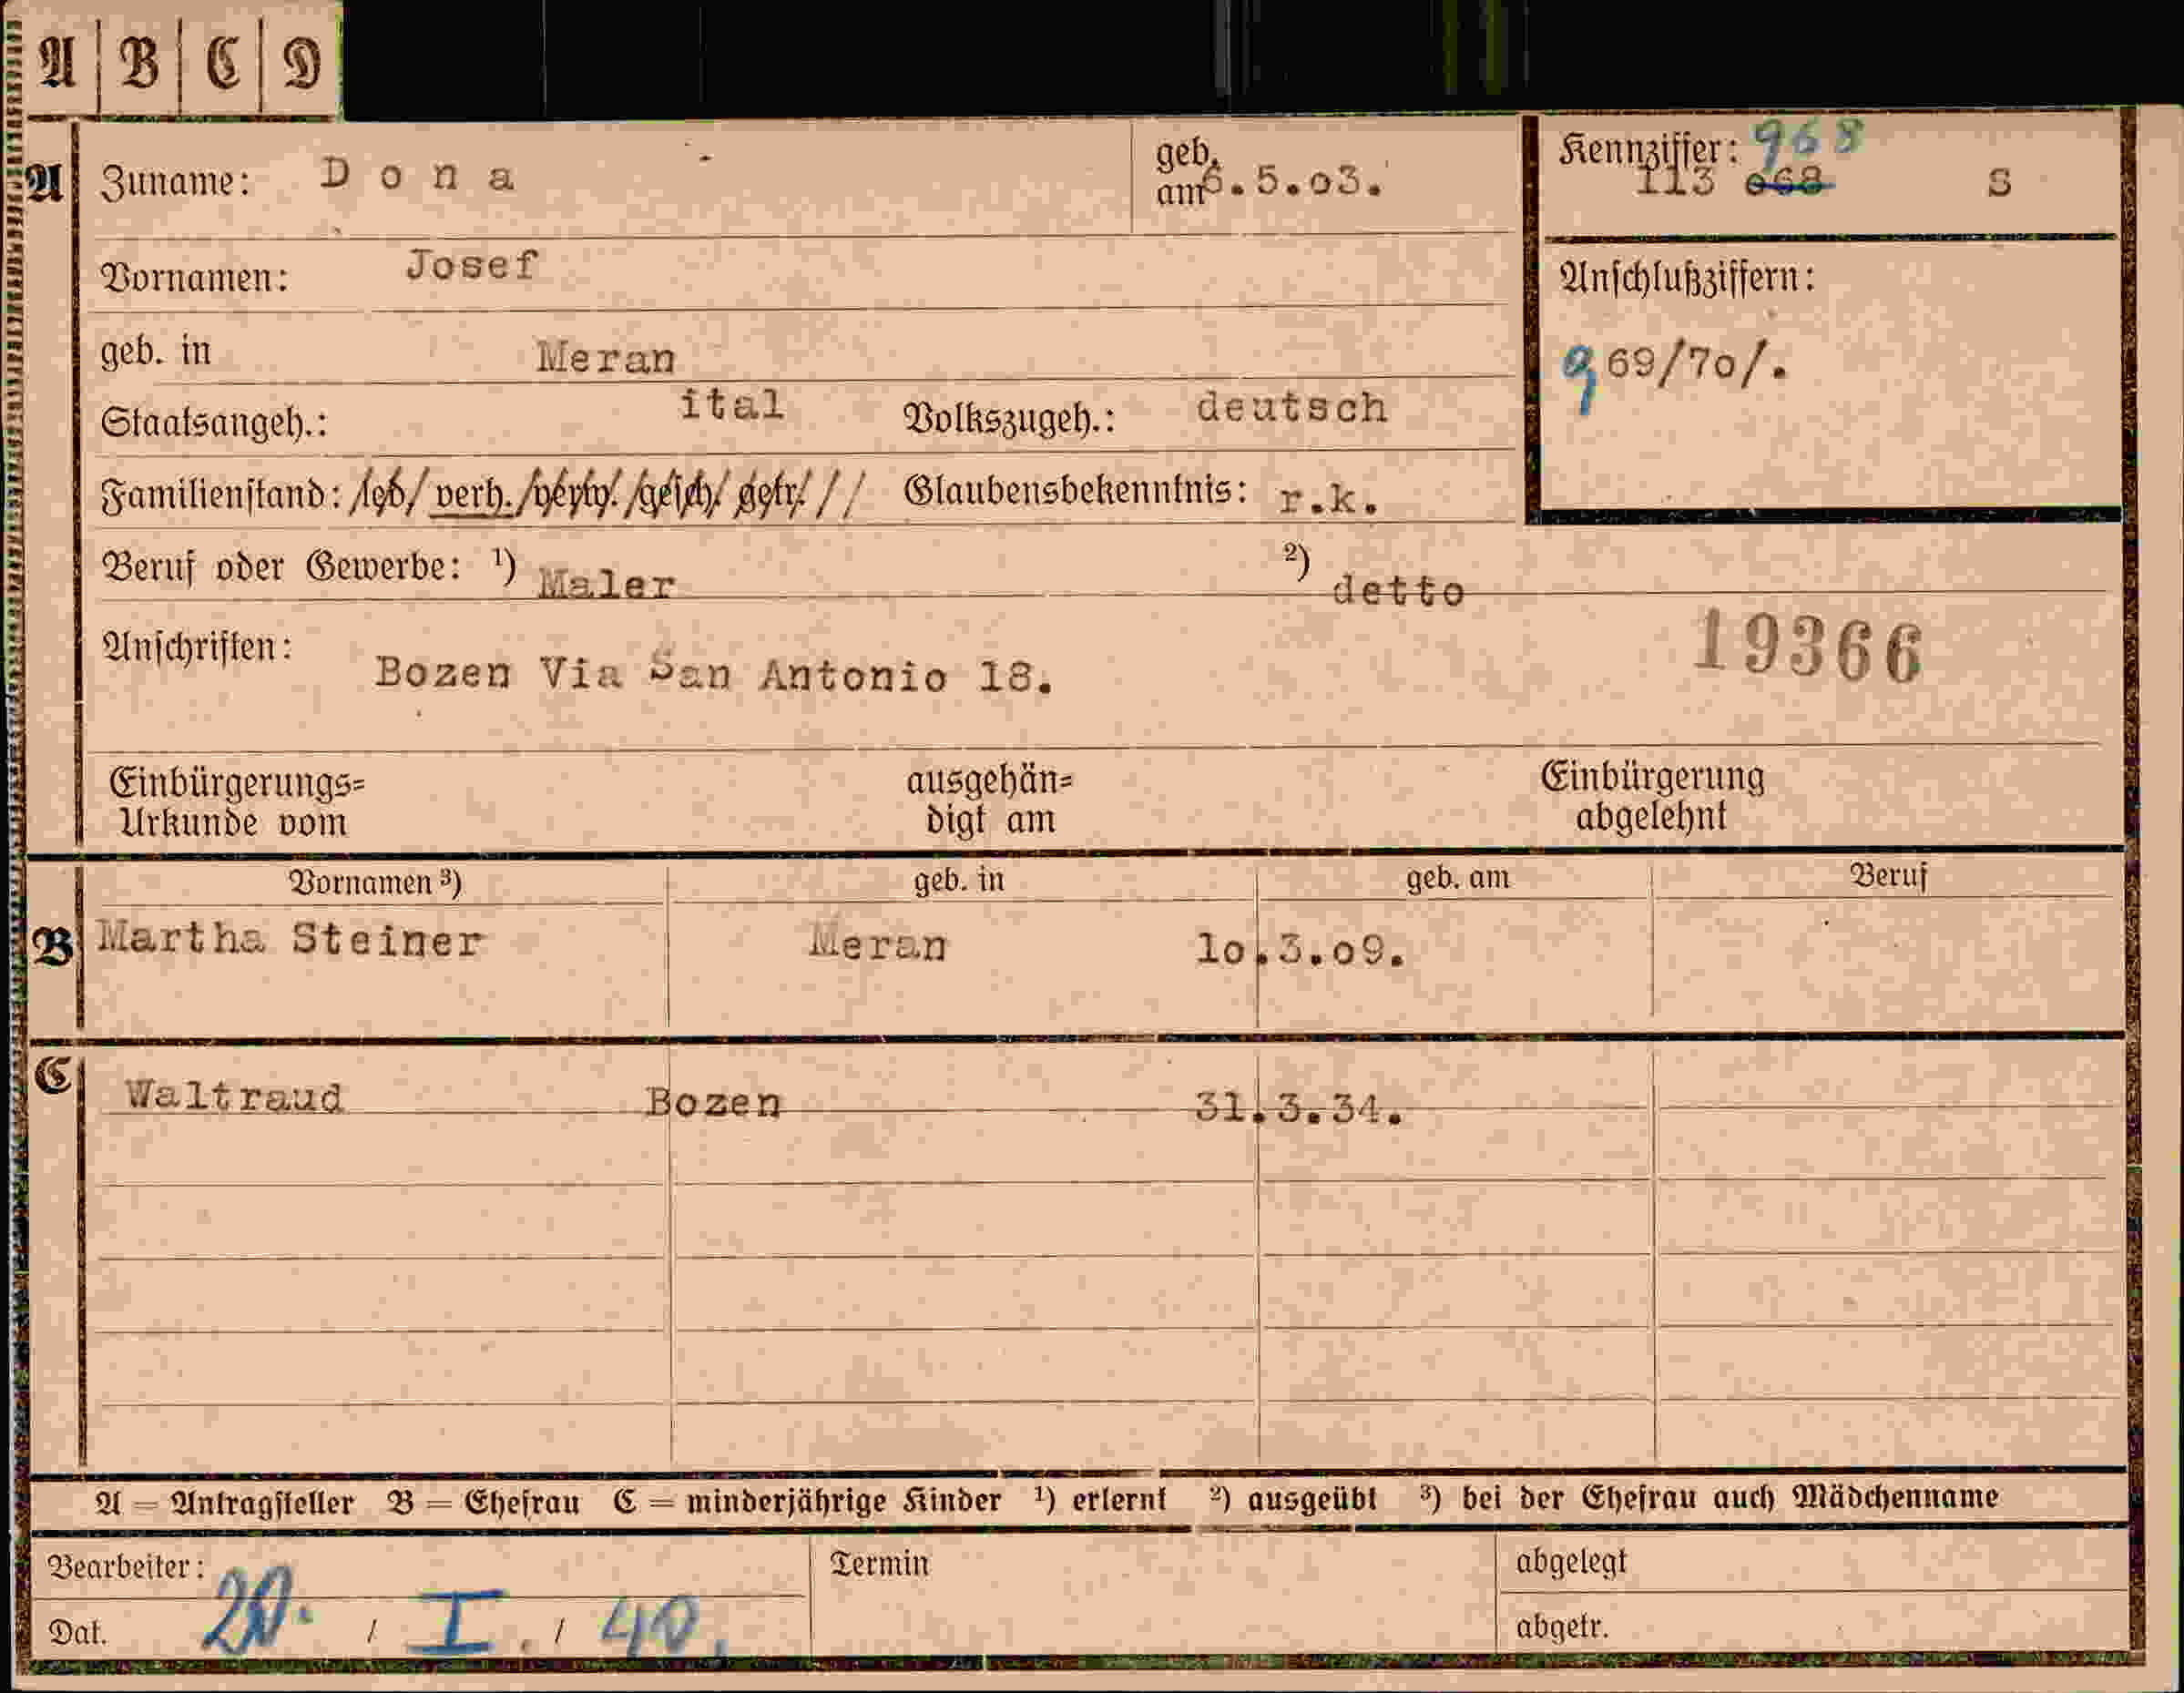 A | B | C | D
A Zuname: Dona geb. am 6.5.03. Kennziffer: 968
113 068 S
Vornamen: Josef
Anschlußziffern:
geb. in Meran
9 69/70/.
Staatsangeh.: ital Volkszugeh.: deutsch
Familienstand: /led/ verh. /verw. /gesch/ getr. / / Glaubensbekenntnis: r.k.
Beruf oder Gewerbe: ¹) Maler ²) detto
19366
Anschriften: Bozen Via San Antonio 18.
Einbürgerungs= ausgehän= Einbürgerung
Urkunde vom digt am abgelehnt
Vornamen ³) geb. in geb. am Beruf
B Martha Steiner Meran 10.3.09.
C Waltraud Bozen 31.3.34.
A = Antragsteller B = Ehefrau C = minderjährige Kinder ¹) erlernt ²) ausgeübt ³) bei der Ehefrau auch Mädchenname
Bearbeiter: Termin abgelegt
Dat. 20. / I. / 40. abgetr.